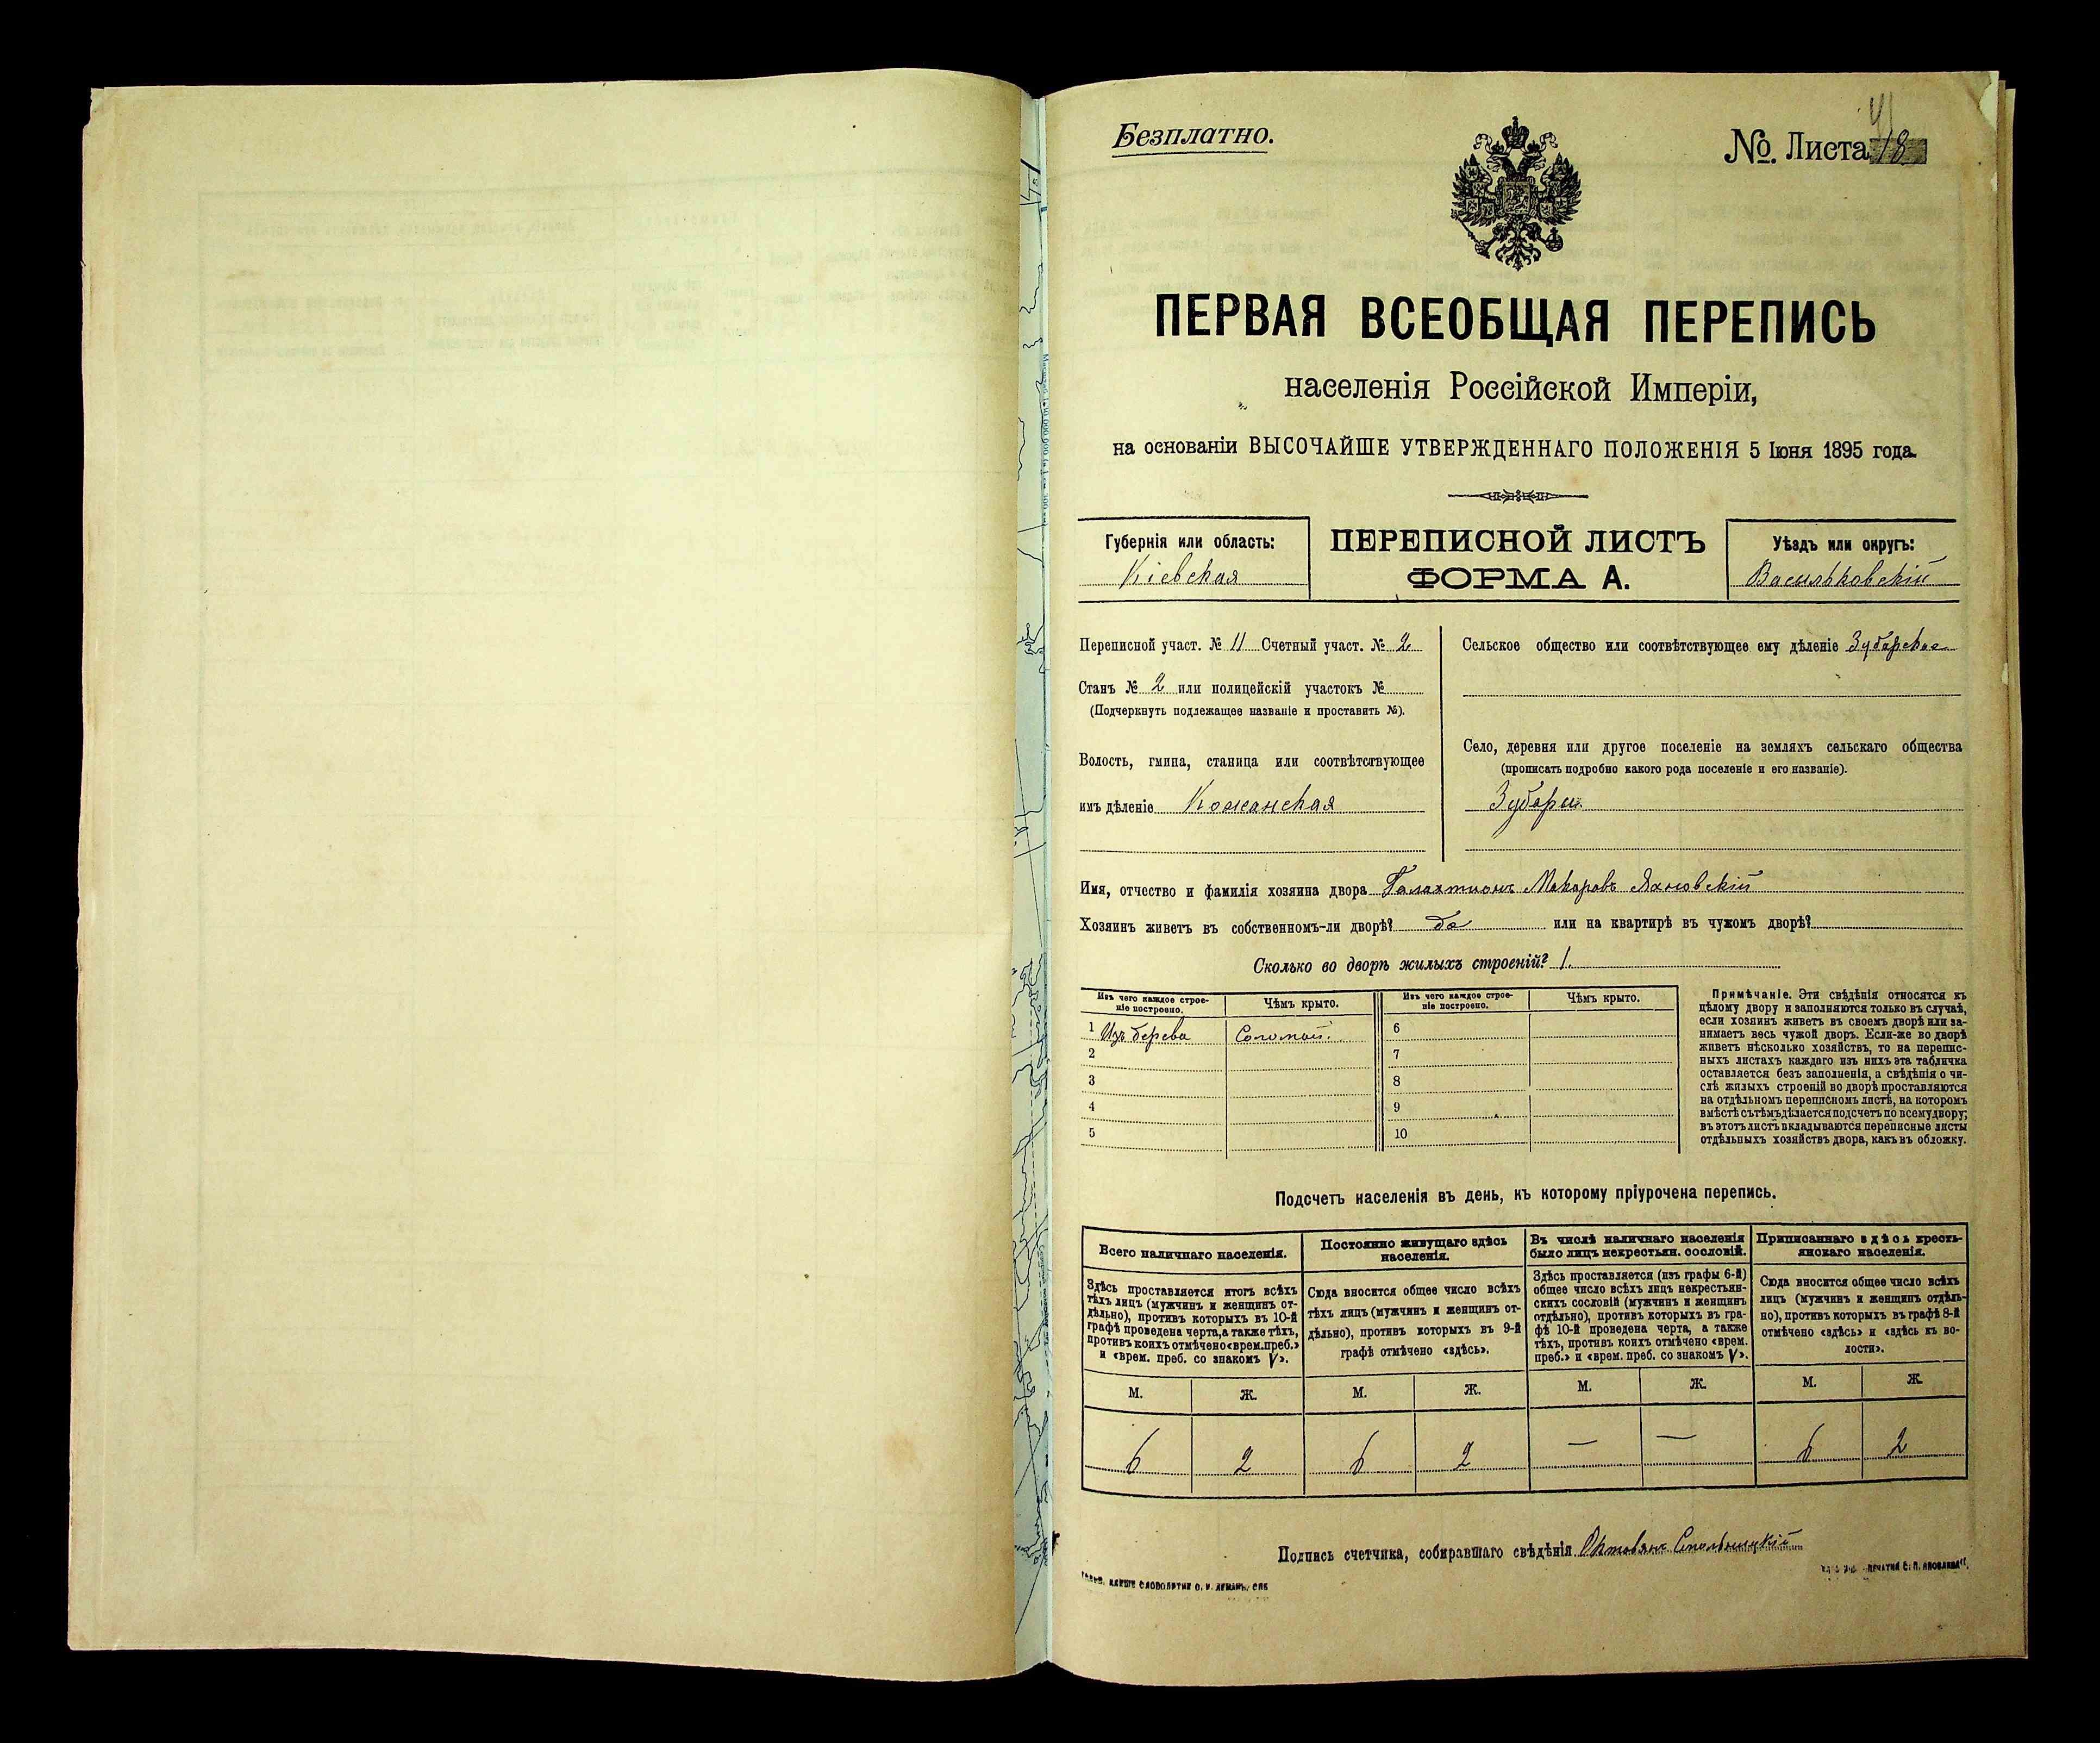 Безплатно.
№. Листа 18
ПЕРВАЯ ВСЕОБЩАЯ ПЕРЕПИСЬ
населенія Россійской Имперіи,
на основаніи ВЫСОЧАЙШЕ УТВЕРЖДЕННАГО ПОЛОЖЕНІЯ 5 Іюня 1895 года.
Губернія или область:
Кіевская
ПЕРЕПИСНОЙ ЛИСТЪ
ФОРМА А.
Уѣздъ или округъ:
Васильковскій
Переписной участ. № 11 Счетный участ. № 2
Станъ № 2 или полицейскій участокъ №
(Подчеркнуть подлежащее названіе и проставить №).
Волость, гмина, станица или соотвѣтствующее
имъ дѣленіе Кожанская
Сельское общество или соотвѣтствующее ему дѣленіе Зубарское
Село, деревня или другое поселеніе на земляхъ сельскаго общества
(прописать подробно какого рода поселеніе и его названіе).
Зубари
Имя, отчество и фамилія хозяина двора Галактионъ Макаровъ Яхновскій
Хозяинъ живетъ въ собственномъ-ли дворѣ? да или на квартирѣ въ чужомъ дворѣ?
Сколько во дворѣ жилыхъ строеній? 1.
Изъ чего каждое строе-
ніе построено.
Чѣмъ крыто.
Изъ чего каждое строе-
ніе построено.
Чѣмъ крыто.
1 Изъ дерева Соломой. 6
2 7
3 8
4 9
5 10
Примѣчаніе. Эти свѣдѣнія относятся къ
цѣлому двору и заполняются только въ случаѣ,
если хозяинъ живетъ въ своемъ дворѣ или за-
нимаетъ весь чужой дворъ. Если-же во дворѣ
живетъ нѣсколько хозяйствъ, то на перепис-
ныхъ листахъ каждаго изъ нихъ эта табличка
оставляется безъ заполненія, а свѣдѣнія о чи-
слѣ жилыхъ строеній во дворѣ проставляются
на отдѣльномъ переписномъ листѣ, на которомъ
вмѣстѣ съ тѣмъ дѣлается подсчетъ по всему двору;
въ этотъ листъ вкладываются переписные листы
отдѣльныхъ хозяйствъ двора, какъ въ обложку.
Подсчетъ населенія въ день, къ которому пріурочена перепись.
Всего наличнаго населенія.
Здѣсь проставляется итогъ всѣхъ
тѣхъ лицъ (мужчинъ и женщинъ от-
дѣльно), противъ которыхъ въ 10-й
графѣ проведена черта, а также тѣхъ,
противъ коихъ отмѣчено «врем. преб.»
и «врем. преб. со знакомъ V».
Постоянно живущаго здѣсь
населенія.
Сюда вносится общее число всѣхъ
тѣхъ лицъ (мужчинъ и женщинъ от-
дѣльно), противъ которыхъ въ 9-й
графѣ отмѣчено «здѣсь».
Въ числѣ наличнаго населенія
было лицъ некрестьян. сословій.
Здѣсь проставляется (изъ графы 6-й)
общее число всѣхъ лицъ некрестьян-
скихъ сословій (мужчинъ и женщинъ
отдѣльно), противъ которыхъ въ гра-
фѣ 10-й проведена черта, а также
тѣхъ, противъ коихъ отмѣчено «врем.
преб.» и «врем. преб. со знакомъ V».
Приписаннаго здѣсь кресть-
янскаго населенія.
Сюда вносится общее число всѣхъ
лицъ (мужчинъ и женщинъ отдѣль-
но), противъ которыхъ въ графѣ 8-й
отмѣчено «здѣсь» и «здѣсь къ во-
лости».
М. Ж. М. Ж. М. Ж. М. Ж.
6 2 6 2 — — 6 2
Подпись счетчика, собиравшаго свѣдѣнія